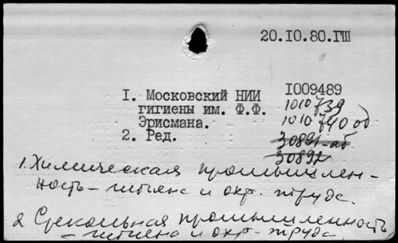 20.10.80.ГШ
I. Московский НИИ I009489
гигиены им. Ф.Ф. 1010739
Эрисмана. 1010740 об
2. Ред. 30891-аб
30892
1. Химическая промышлен-
ность – гигиена и охр. труда.
2. Стекольная промышленность
– гигиена и охр. труда